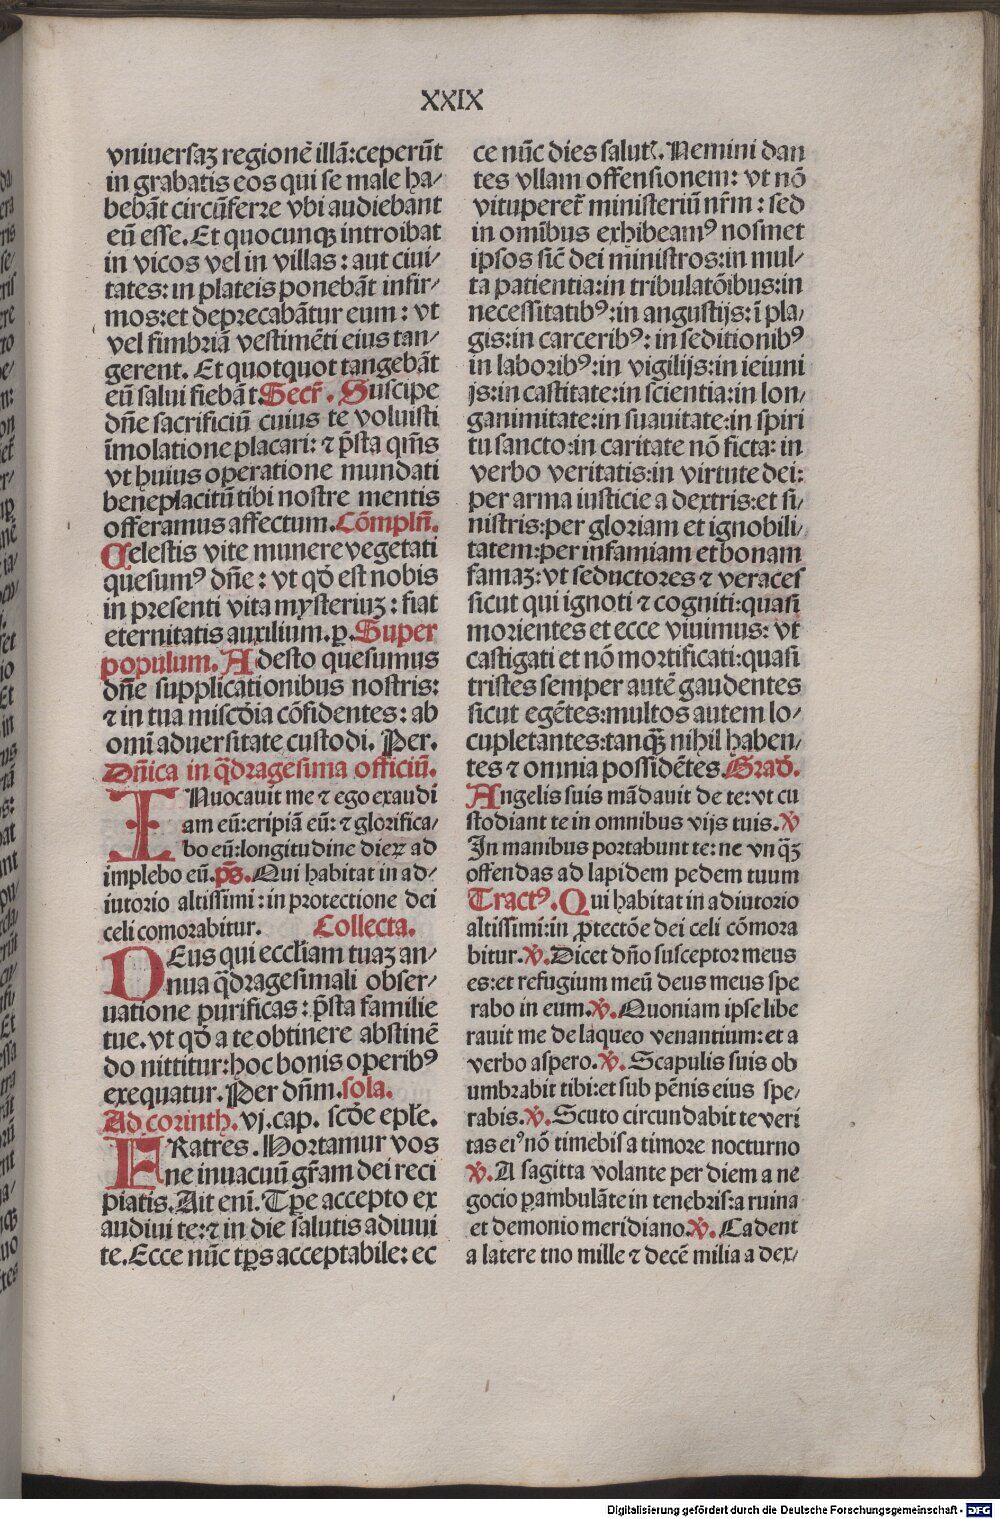 XXIX
vniuersaꝫ regionē illā:ceperūt
in grabatis eos qui se male ha/
bebāt circūferre vbi audiebant
eū esse. Et quocunqꝫ introibat
in vicos vel in villas : aut ciui/
tates: in plateis ponebāt infir/
mos:et deprecabātur eum : vt
vel fimbriā vestimēti eius tan/
gerent. Et quotquot tangebāt
eū salui fiebāt. Secr̄. Suscipe
dn̄e sacrificiū cuius te voluisti
īmolatione placari: ⁊ p̄sta qm̄s
vt huius operatione mundati
beneplacitū tibi nostre mentis
offeramus affectum. Cōmplñ.
Celestis vite munere vegetati
quesumꝰ dn̄e : vt qd̄ est nobis
in presenti vita mysteriuꝫ : fiat
eternitatis auxilium. ꝑ. Super
populum. Adesto quesumus
dn̄e supplicationibus nostris:
⁊ in tua miscd̄ia cōfidentes : ab
omī aduersitate custodi. Per.
Dn̄ica in q̄dragesima officiū.
INuocauit me ⁊ ego exaudi
am eū:eripiā eū: ⁊ glorifica/
bo eū:longitudine dieꝝ ad
implebo eū. ps̄. Qui habitat in ad/
iutorio altissimi : in protectione dei
celi comorabitur. Collecta.
DEus qui eccl̄iam tuaꝫ an/
nua q̄dragesimali obser/
uatione purificas : p̄sta familie
tue. vt qd̄ a te obtinere abstinē
do nittitur:hoc bonis operibꝰ
exequatur. Per dn̄m. sola.
Ad corinth. vj. cap. scd̄e epl̄e.
FRatres. Hortamur vos
ne inuacuū gr̄am dei reci
piatis. Ait enī. Tp̄e accepto ex
audiui te:⁊ in die salutis adiuui
te. Ecce nūc tp̄s acceptabile: ec
ce nūc dies salutꝭ. Nemini dan
tes vllam offensionem: vt nō
vituperet̄ ministeriū nr̄m : sed
in omībus exhibeamꝰ nosmet
ipsos sic̄ dei ministros:in mul/
ta patientia:in tribulatōibus:in
necessitatibꝰ:in angustijs:ī pla/
gis:in carceribꝰ: in seditionibꝰ
in laboribꝰ:in vigilijs:in ieiuni
js:in castitate:in scientia:in lon/
ganimitate:in suauitate:in spiri
tu sancto:in caritate nō ficta: in
verbo veritatis:in virtute dei:
per arma iusticie a dextris:et si/
nistris:per gloriam et ignobili/
tatem:per infamiam et bonam
famaꝫ:vt seductores ⁊ veraces
sicut qui ignoti ⁊ cogniti:quasi
morientes et ecce viuimus: vt
castigati et nō mortificati:quasi
tristes semper autē gaudentes
sicut egētes:multos autem lo/
cupletantes:tanqꝫ̄ nihil haben/
tes ⁊ omnia possidētes. Grad̄.
Angelis suis mādauit de te: vt cu
stodiant te in omnibus vijs tuis. ℣
In manibus portabunt te: ne vnqꝫ̄
offendas ad lapidem pedem tuum
Tractꝰ. Qui habitat in adiutorio
altissimi:in ꝓtectōe dei celi cōmora
bitur. ℣. Dicet dn̄o susceptor meus
es:et refugium meū deus meus spe
rabo in eum. ℣. Quoniam ipse libe
rauit me de laqueo venantium: et a
verbo aspero. ℣. Scapulis suis ob
umbrabit tibi:et sub pēnis eius spe/
rabis. ℣. Scuto circundabit te veri
tas eiꝰ nō timebis a timore nocturno
℣. A sagitta volante per diem a ne
gocio ꝑambulāte in tenebris:a ruina
et demonio meridiano. ℣. Cadent
a latere tuo mille ⁊ decē milia a dex/
Digitalisierung gefördert durch die Deutsche Forschungsgemeinschaft - DFG